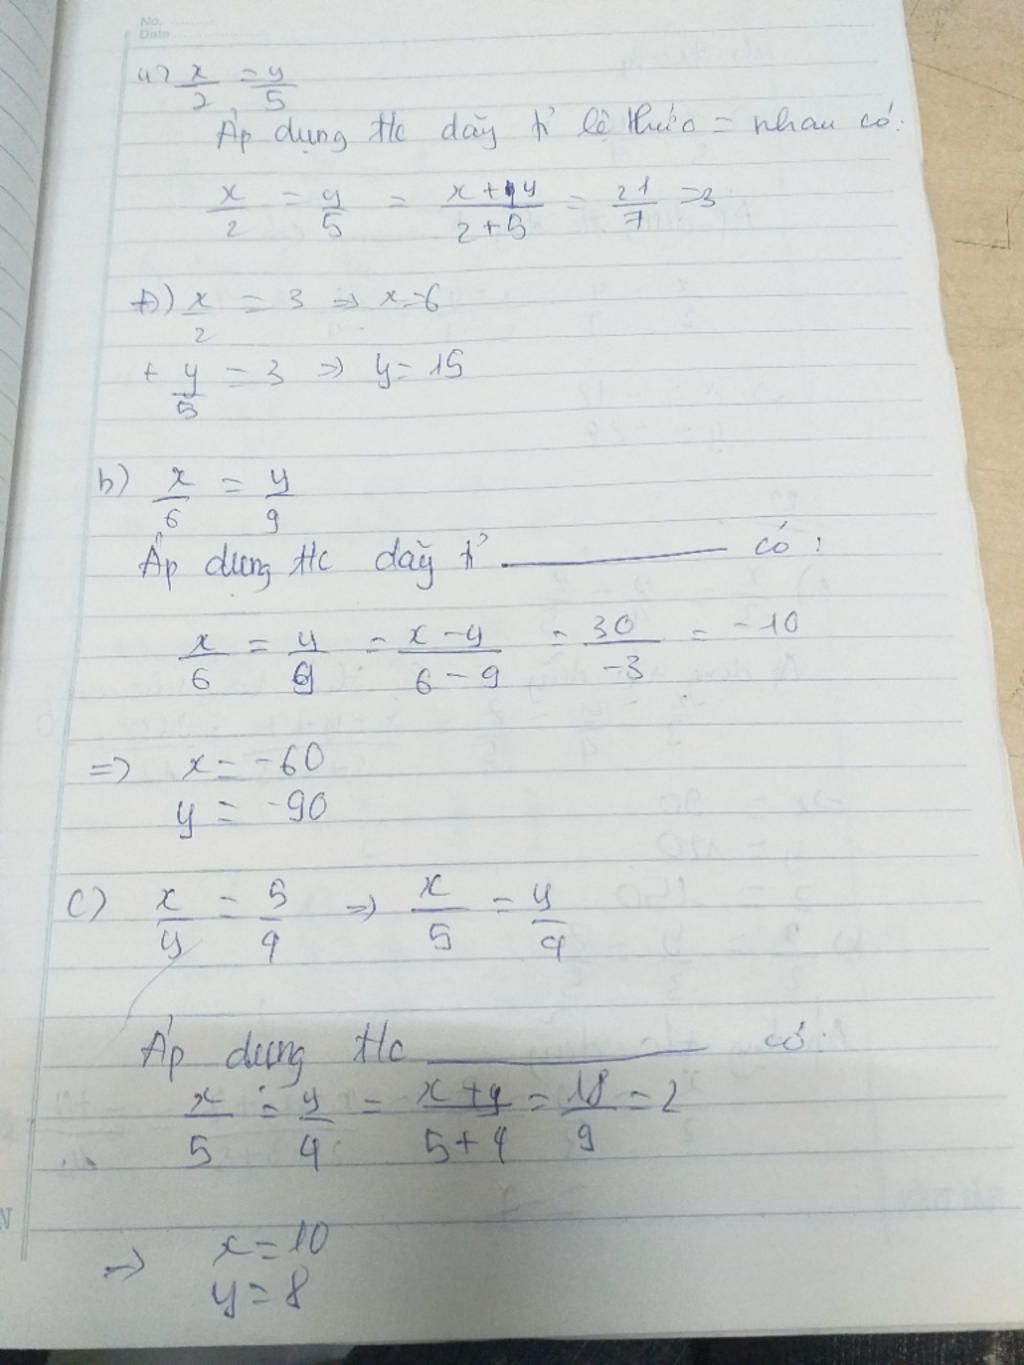 No.
Date
a) x/2 = y/5
Áp dụng t/c dãy tỉ lệ thức = nhau có:
x/2 = y/5 = x+y/2+5 = 21/7 = 3
+) x/2 = 3 => x=6
+ y/5 = 3 => y=15
b) x/6 = y/9
Áp dụng t/c dãy tỉ ——— có:
x/6 = y/9 = x-y/6-9 = 30/-3 = -10
=> x = -60
y = -90
c) x/y = 5/4 => x/5 = y/4
Áp dụng t/c ——— có:
x/5 = y/4 = x+y/5+4 = 18/9 = 2
=> x=10
y=8